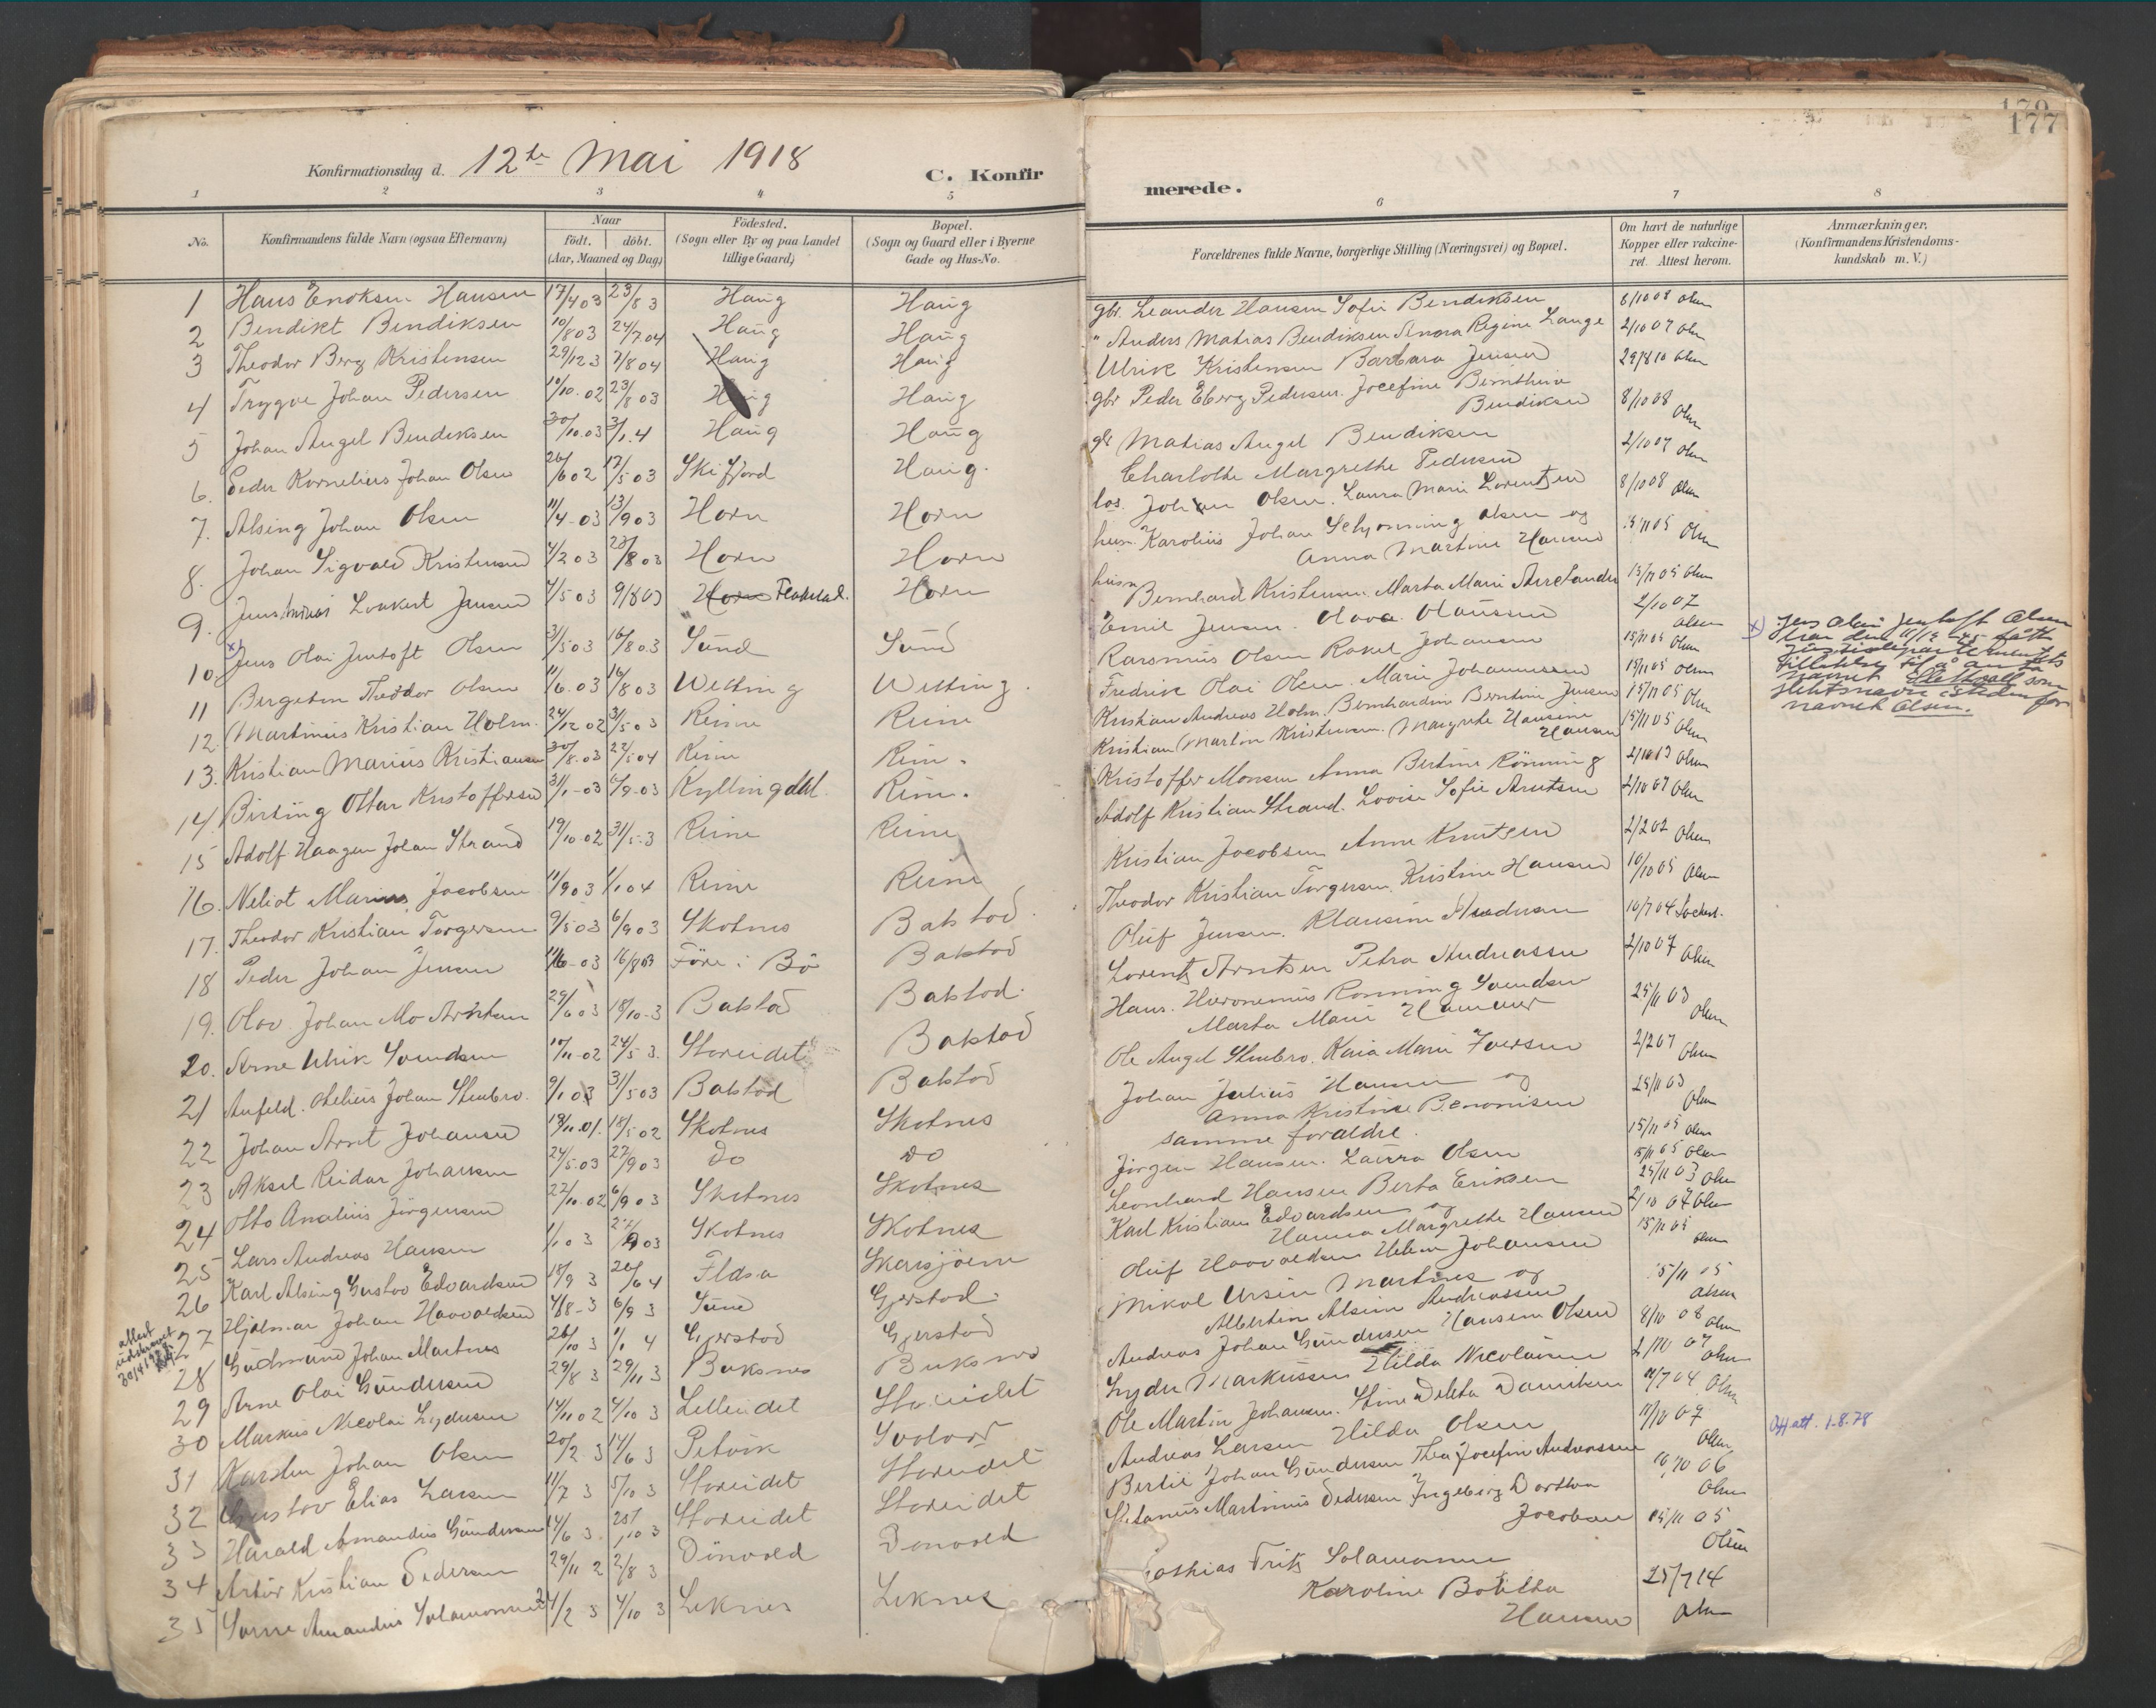 170
177
Konfirmationsdag d. 12te Mai 1918 C. Konfir
merede.
1 2 3 4 5
6 7 8
No.
Konfirmandens fulde Navn (ogsaa Efternavn)
Naar
födt. döbt.
(Aar, Maaned og Dag)
Födested.
(Sogn eller By og paa Landet
tillige Gaard)
Bopæl.
(Sogn og Gaard eller i Byerne
Gade og Hus-No.
Forældrenes fulde Navne, borgerlige Stilling (Næringsvei) og Bopæl.
Om havt de naturlige
Kopper eller vakcine-
ret. Attest herom.
Anmærkninger.
(Konfirmandens Kristendoms-
kundskab m. V.)
1 Hans Enoksen Hansen 17/4 03 23/8 3 Haug Haug
2 Bendikt Bendiksen 10/8 03 24/7 04 Haug Haug
3 Theodor Berg Kristensen 29/12 3 7/8 04 Haug Haug
4 Trygve Johan Pedersen 10/10 02 23/8 03 Haug Haug
5 Johan Angel Bendiksen 30/10 03 3/1 4 Haug Haug
6. Peder Kornelius Johan Olsen 26/6 02 17/5 03 Skifjord Haug.
7. Alsing Johan Olsen 11/4-03 13/9 03 Horn Horn
8. Johan Sigvald Kristensen 4/2 03 23/8 03 Horn Horn
9. Jens Lockert Jensen 4/5 03 9/8 03 Horn Flakstad. Horn
10. x) Jens Olai Jentoft Olsen 31/5 03 16/8 03 Sund Sund
11 Bergeton Theodor Olsen 11/6 03 16/8 03 Wetting Wetting.
12. Martinius Kristian Holm. 24/12 02 31/5 03 Reine Reine
13. Kristian Marius Kristiansen 30/8 03 22/5 04 Reine Rein.
14. Birting Ottar Kristoffersen 31/1-03 6/9-03 Kyllingdal. Rein.
15 Adolf Haagen Johan Strand 19/10-02 31/5-3 Reine Reine
16. Neliot Marius Jacobsen 11/9 03 1/1 04 Reine Reine
17. Theodor Kristian Torgersen 9/5 03 6/9 03 Skotnes Balstad.
18 Peder Johan Jensen 11/6-03 16/8 03 Före i Bö Balstad
19. Olav Johan Mo Arntsen 29/6 03 18/10-3 Balstad Balstad.
20. Arne Ulrik Svendsen 10/11-02 24/5 3. Storeidet Balstad
21 Anfeld Johan Stenbro. 9/1 03 31/5 03 Balstad Balstad
22 Johan Arnt Johansen 19/11.01. 18/5 02 Skotnes Skotnes
23 Aksel Reidar Johansen 24/5.03 27/9 03 Do Do
24 Otto Analius Jörgensen 22/10-02 6/9 03 Skotnes Skotnes
25 Lars Andreas Hansen 1/1 03 27/9 03 Skotnes Skotnes
26 Karl Alsing Gustav Edvardsen 18/9 3 26/6 4 Skarsjöen
27 Hjalmar Johan Haavaldsen 4/8-3 6/9 3 Sund Gjerstad.
28 Gudmund Johan Martnes 26/10 3 1/1 4 Gjerstad Gjerstad
29 Arne Olai Gundersen 29/8 3 29/11 3 Buksnes Buksnes
30 Markus Nicolai Lydersen 14/11 02 4/10 3 Lilleeidet Storeidet
31 Karsten Johan Olsen 20/2 3 14/6 3 Petvik
32 Gustav Elias Larsen 11/7 3 5/10 3 Storeidet Storeidet
33 Harald Amandus Gundersen 14/6 3 25/10 3 Storeidet Storeidet
34 Artur Kristian Pedersen 29/11 2 2/8 3 Dönvold Donvold
35 Amandus Salamonsen 4/2 3 4/10 3 Leknes Leknes
attest
udskrevet
30/4 1927
gbr. Leander Hansen Sofie Bendiksen 8/10 08 Olsen
" Anders Matias Bendiksen Anora Regine Lange 2/10 07 Olsen
Ulrik Kristensen Barbara Jensen 29/8 10 Olsen
gbr Peder Eberg Pedersen. Josefine Bernthine
Bendiksen 8/10 08 Olsen
gbr Matias Angel Bendiksen 2/10 07 Olsen
Charlotte Margrethe Pedersen
los. Johan Olsen. Laura Marie Lorentsen 8/10 08 Olsen
husm. Karolius Johan Schjönning Olsen og
Anna Martine Hansen 15/11 05 Olsen
husm Bernhard Kristensen. Marta Marie 15/11 05 Olsen
Emil Jensen. Olava Olaussen 2/10 07 Olsen
Rasmus Olsen Rakel Johansen 15/11 05 Olsen
Fredrik Olai Olsen. Marie Johannesen 15/11 05 Olsen
Kristian Andreas Holm. Bernhardine Berntine Jensen 15/11 05 Olsen
Kristian Martin Kristensen. Margrete Hansine
Hansen 15/11 05 Olsen
Kristoffer Monsen Anna Bertine Rönning 2/10 13 Olsen
Adolf Kristian Strand. Lovise Sofie Arntsen 2/10 07 Olsen
Kristian Jacobsen Anne Knutsen 2/2 02 Olsen
Theodor Kristian Torgersen. Kristine Hansen 10/10 05 Olsen
Oluf Jensen. Klausine 10/7 04 Lockert.
Lorents Arntsen Petra Andreassen 2/10 07 Olsen
Hans Hieronimus Ronning Svendsen
Marta Marie Hammer 25/11 03 Olsen
Ole Angel Stenbro. Kaia Marie Iversen 2/2 07 Olsen
Johan Julius Hansen og
Anna Kristine Benonisen 25/11 03 Olsen
samme foraldre. 15/11 05 Olsen
Jörgen Hansen. Laura Olsen 15/11 05 Olsen
Leonhard Hansen Berta Eriksen 25/11 03 Olsen
Karl Kristian Edvardsen og 2/10 07 Olsen
Hanna Margrethe Hansen 15/11 05 Olsen
Oluf Haavaldsen Helene Johansen
Mikal Ursin Martnes og 15/11 05 Olsen
Albertine Alsine Andreassen
Andreas Johan Gundersen Hansine Olsen 8/10 08 Olsen
Lyder Markussen Hilda Nicolaisen 2/10 07 Olsen
Ole Martin Johansen. Stine Delita Danielsen 11/7 04 Olsen
Andreas Larsen Hilda Olsen 11/10 07 Olsen
Bertil Johan Gundersen Thea Josefine Andreassen 10/10 06 Olsen
Martinus Pedersen Ingeborg Dorthea
Jacobsen 15/11 05 Olsen
Mathias Fritz Salamonsen
Karoline Bolette 25/7 14
Hansen Olsen
x) Jens Olai Jentoft Olsen
har den 11/12 45 fått
Justisdepartementets
tillatelse til å anta
navnet som
slektsnavn istedenfor
navnet Olsen.
Off att. 1.8.78